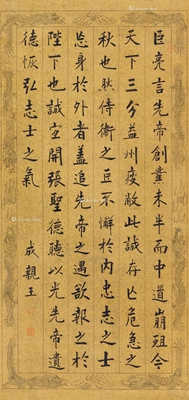 臣亮言先帝創業未半而中道崩殂今
天下三分益州疲敝此誠存亡危急之
秋也然侍衛之臣不懈於內忠志之士
忘身於外者蓋追先帝之遇欲報之於
陛下也誠宜開張聖德聽以光先帝遺
德恢弘志士之氣
成親王